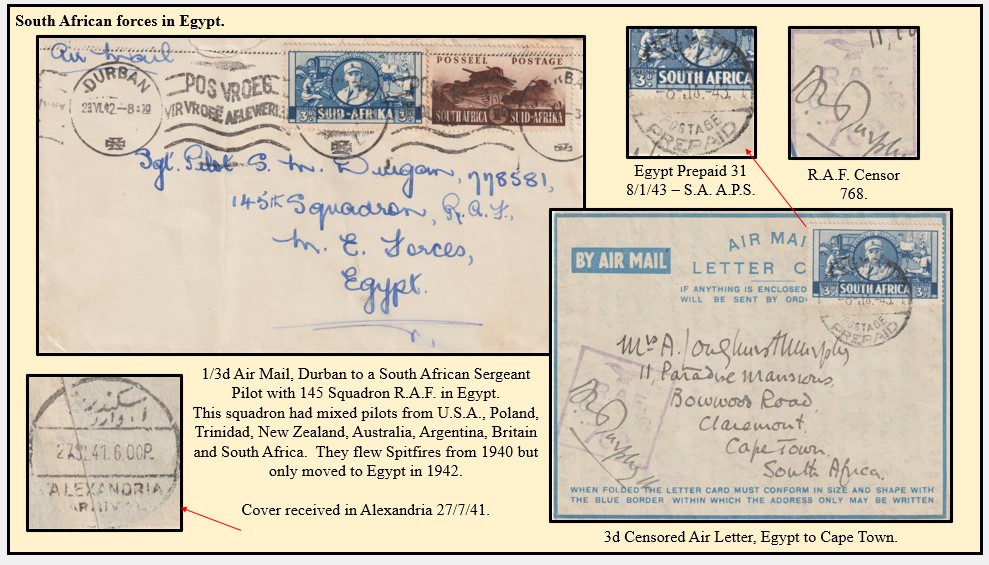 South African forces in Egypt.
Air Mail
DURBAN
23 VI 42 – 8:30
POS VROEG
VIR VROEË AFLEWERING
3D SUID-AFRIKA 3D
POSSEEL POSTAGE
SOUTH AFRICA 1/- SUID-AFRIKA
Sgt. Pilot S. M. Duigan, 778581,
145th Squadron, R.A.F.,
M. E. Forces,
Egypt.
SOUTH AFRICA
3D
-8 JA.-43.
POSTAGE
PREPAID
Egypt Prepaid 31
8/1/43 – S.A. A.P.S.
R.A.F.
R.A.F. Censor
768.
BY AIR MAIL
AIR MAI
LETTER C
IF ANYTHING IS ENCLOSED
WILL BE SENT BY ORDI
3D SOUTH AFRICA 3D
-8 JA.-43.
POSTAGE
PREPAID
Mrs A. Longhurst Murphy
11, Paradise Mansions,
Bowwood Road,
Claremont,
Cape Town,
South Africa.
WHEN FOLDED THE LETTER CARD MUST CONFORM IN SIZE AND SHAPE WITH
THE BLUE BORDER WITHIN WHICH THE ADDRESS ONLY MAY BE WRITTEN
3d Censored Air Letter, Egypt to Cape Town.
1/3d Air Mail, Durban to a South African Sergeant
Pilot with 145 Squadron R.A.F. in Egypt.
This squadron had mixed pilots from U.S.A., Poland,
Trinidad, New Zealand, Australia, Argentina, Britain
and South Africa. They flew Spitfires from 1940 but
only moved to Egypt in 1942.
Cover received in Alexandria 27/7/41.
27 JL 41. 6.00P.
ALEXANDRIA